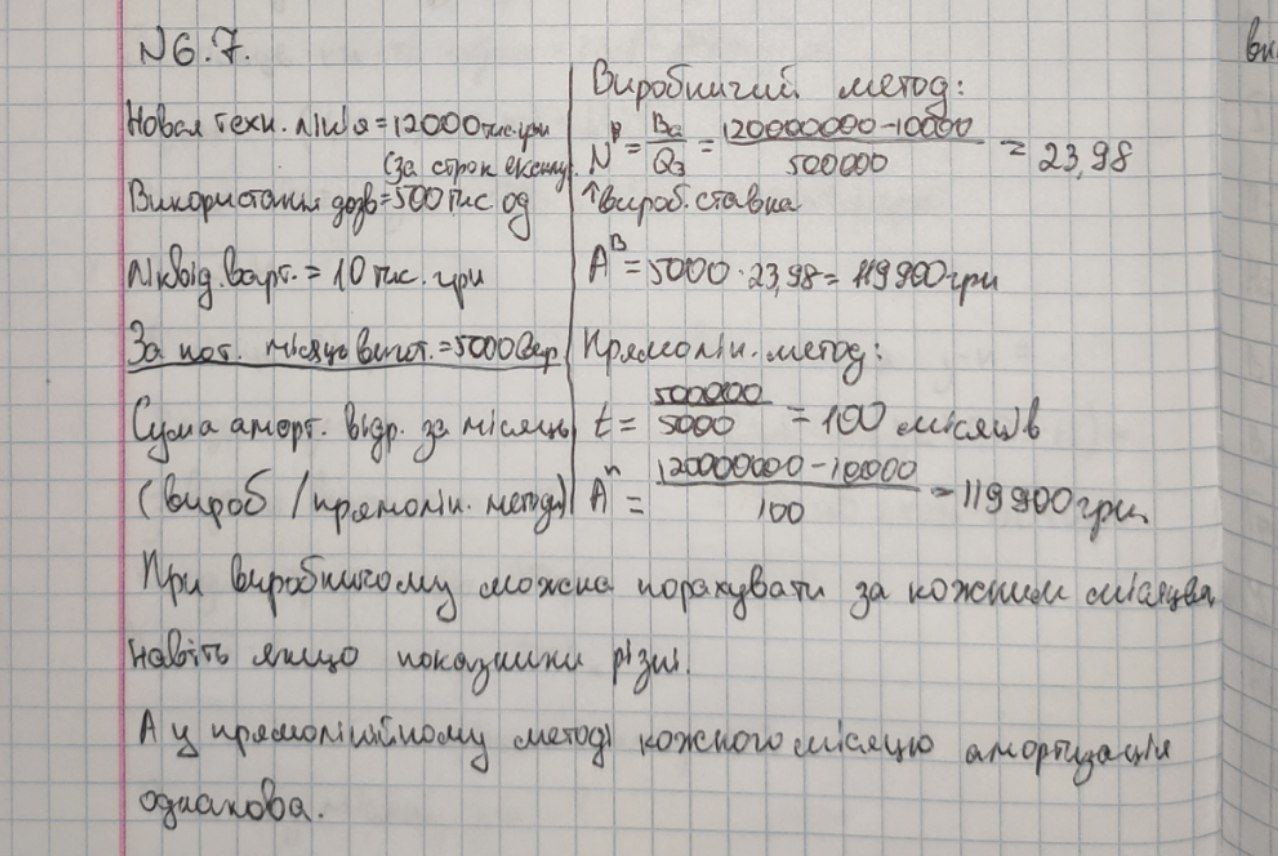 N6.7.
Новая техн. лінія = 12000 тис. грн
(за строк експлу.
Використання дозв = 500 тис. од
Ліквід. варт. = 10 тис. грн
За пот. місяць вигот. = 5000 вер.
Сума аморт. відр. за місяць
(вироб / прямолін. метод)
Виробничий метод:
N^в = Ba/Q3 = 120000000-10000/500000 = 23,98
↑вироб. ставка
A^B = 5000 · 23,98 = 119900 грн
Прямолін. метод:
t = 500000/5000 = 100 місяців
A^п = 120000000-10000/100 = 119900 грн.
При виробничому можна порахувати за кожним місяцем
навіть якщо показники різні.
А у прямолінійному методі кожного місяцю амортизація
однакова.
ви